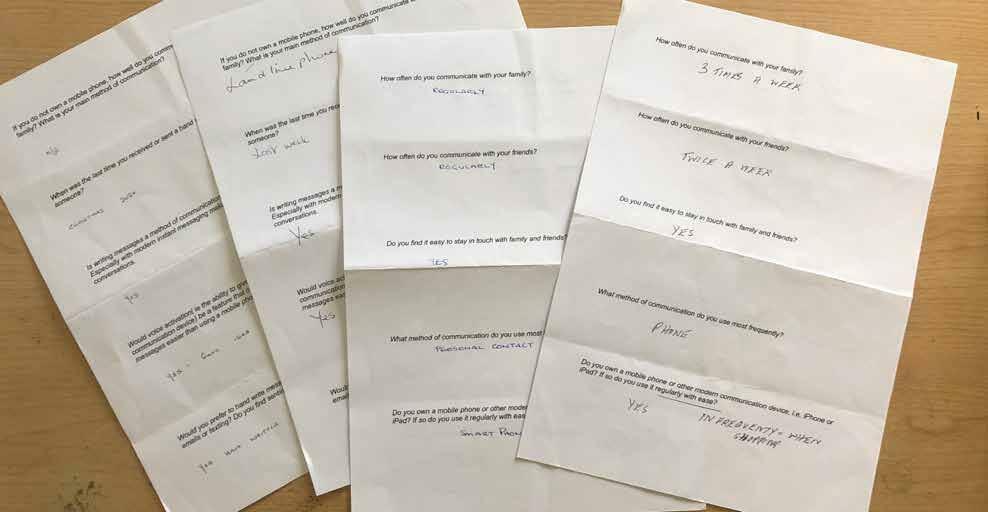 If you do not own a mobile phone, how well do you comm
family? What is your main method of communication?
n/a
When was the last time you received or sent a hand
someone?
CHRISTMAS
Is writing messages a method of communication
Especially with modern instant messaging
conversations.
yes
Would voice activation( ie the ability to give
communication device) be a feature that
messages easier than using a mobile pho
yes - Good idea
Would you prefer to hand write mess
emails or texting? Do you find
yes HAND WRITTEN
If you do not own a mobile phone, how well do you communicate
family? What is your main method of communication?
Land line phone
When was the last time you rec
someone?
Last week
Is writing messages a m
Especially with modern
conversations.
Yes
Would voice act
communication
messages eas
Yes
Would
emai
How often do you communicate with your family?
REGULARLY
How often do you communicate with your friends?
REGULARLY
Do you find it easy to stay in touch with family and friends?
YES
What method of communication do you use most
PERSONAL CONTACT
Do you own a mobile phone or other moder
iPad? If so do you use it regularly with eas
SMART PHON
How often do you communicate with your family?
3 TIMES A WEEK
How often do you communicate with your friends?
TWICE A WEEK
Do you find it easy to stay in touch with family and friends?
YES
What method of communication do you use most frequently?
PHONE
Do you own a mobile phone or other modern communication device, i.e. iPhone or
iPad? If so do you use it regularly with ease?
YES IN FREQUENTY - WHEN
SHOPPING